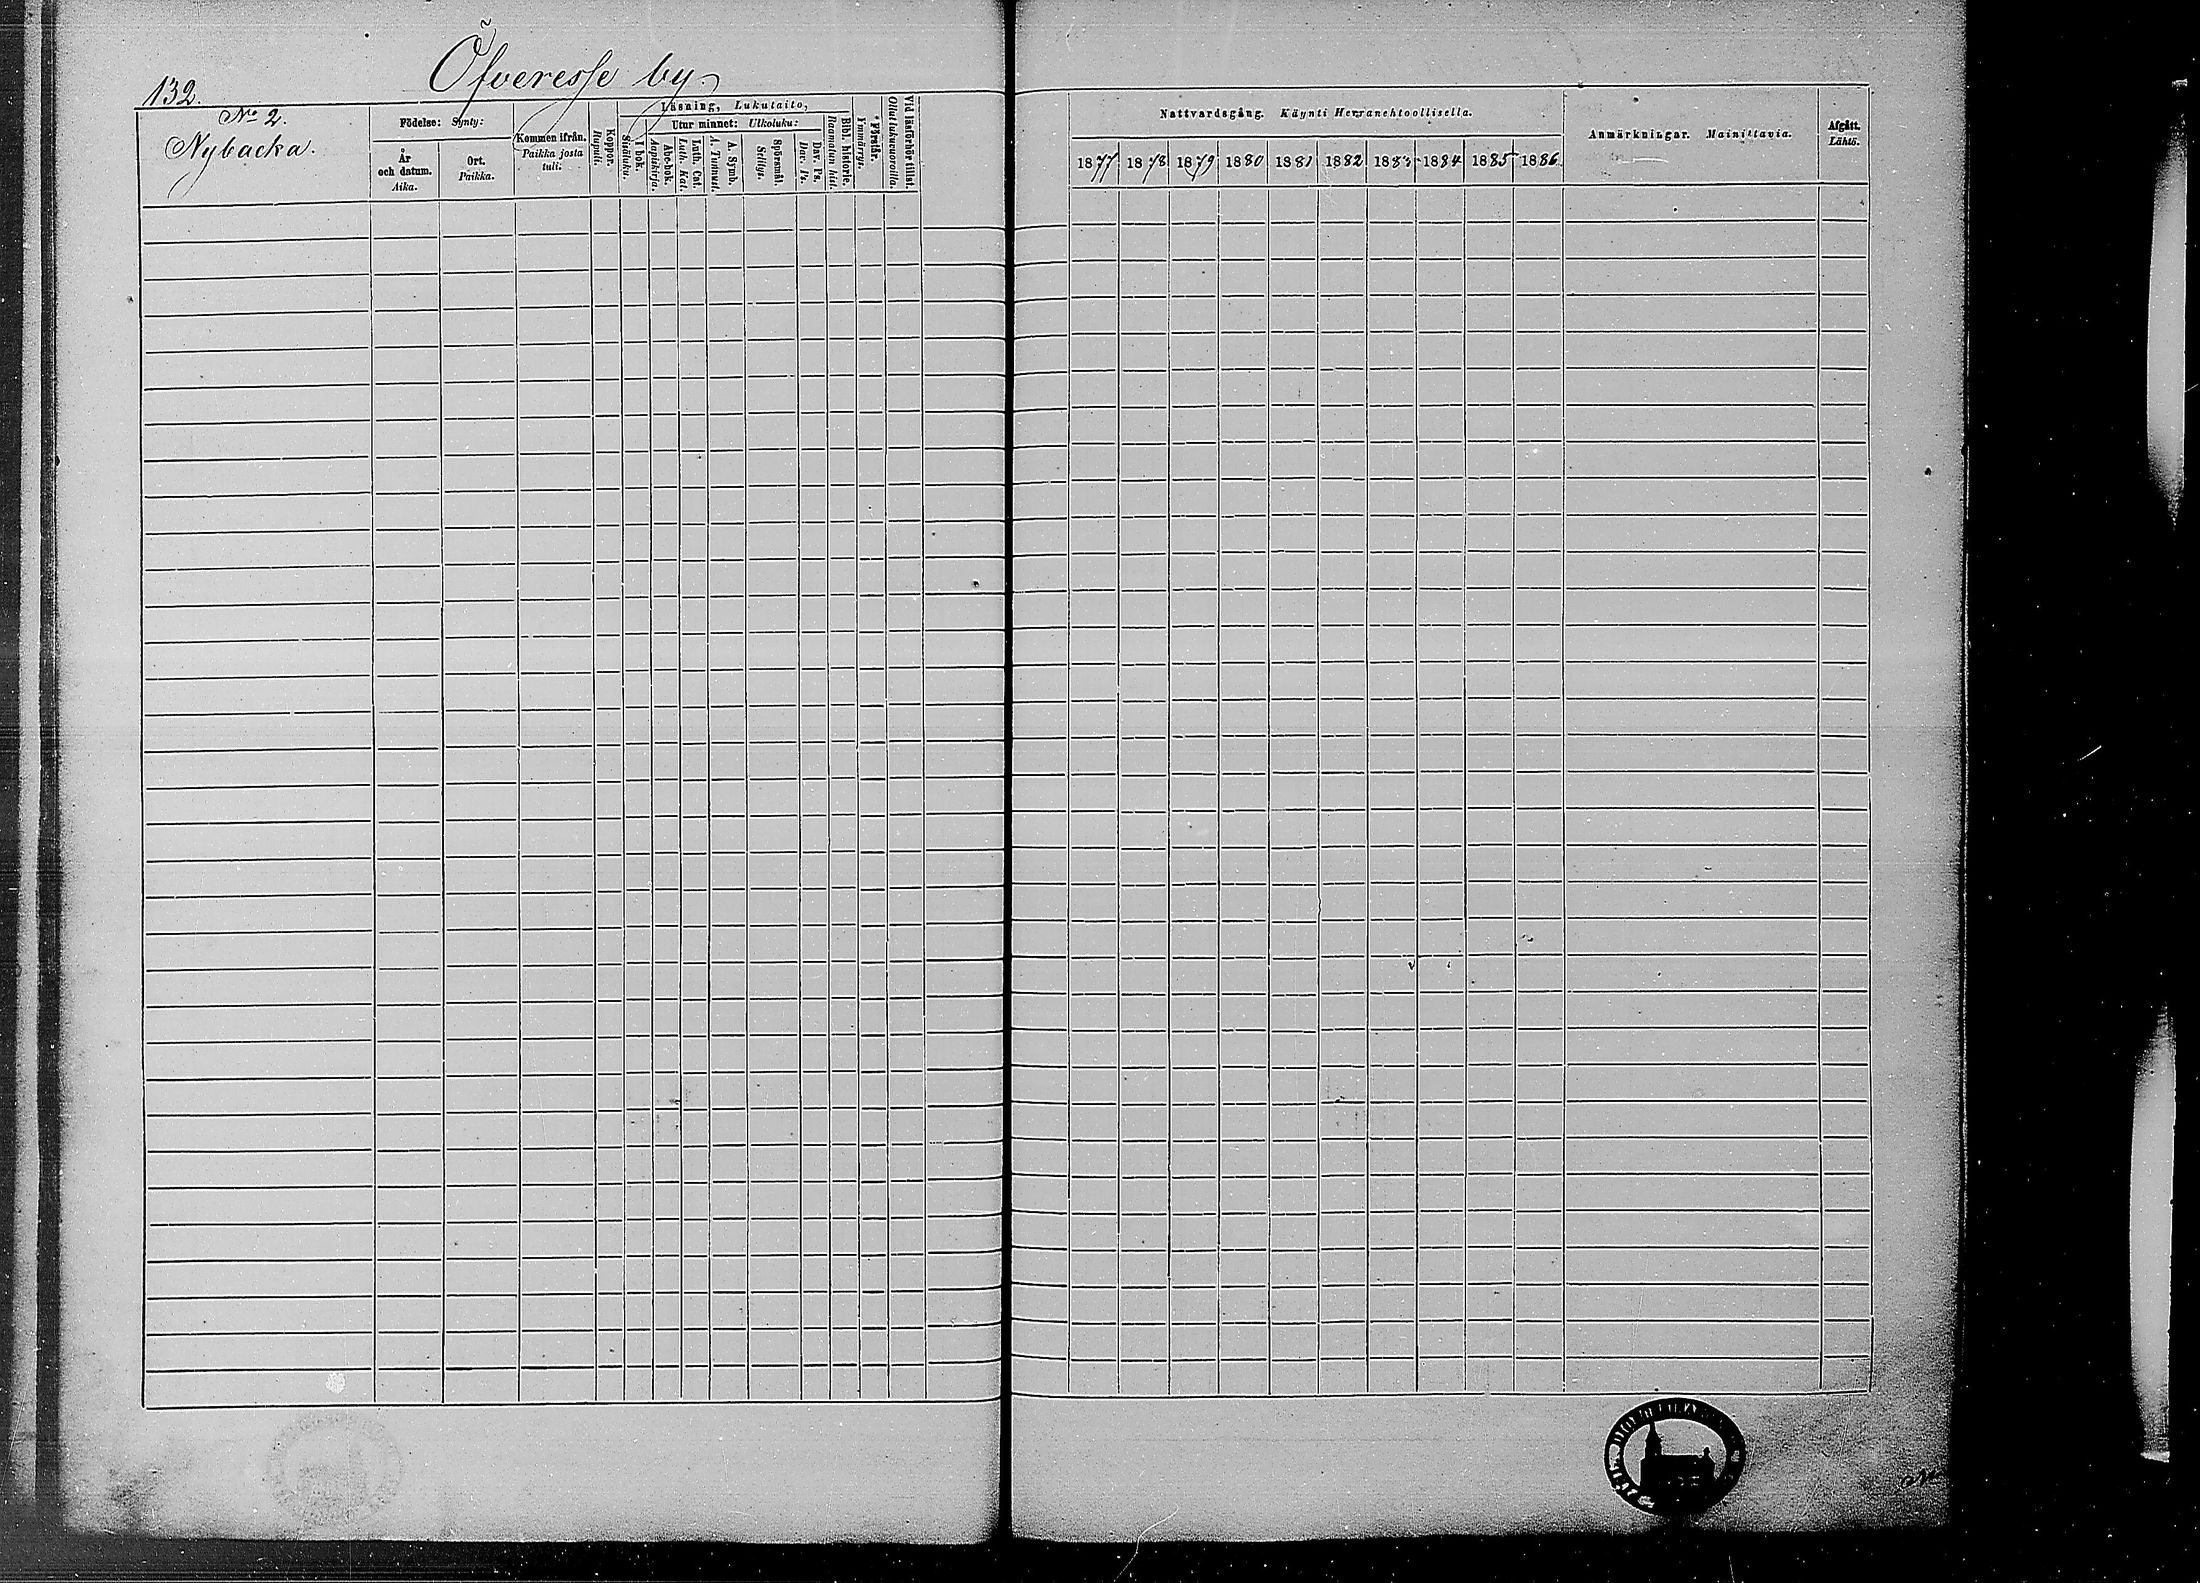 132.
Öfveresse by.
No 2.
Nybacka.
Födelse: Synty:
År och datum. Aika.
Ort. Paikka.
Kommen ifrån. Paikka josta tuli.
Koppor. Rupuli.
Läsning, Lukutaito,
I bok. Sisäluku.
Utur minnet: Ulkoluku:
Abc-bok. Aapiskirja.
Luth. Cat. Luth. Kat.
A. Symb. A. Tunnust.
Spörsmål. Selitys.
Dav. Ps. Dav. Ps.
Bibl. historie. Raamatun hist.
Förstår. Ymmärrys.
Vid läsförhör tillst. Ollut lukuvuoroilla.
Nattvardsgång. Käynti Herranehtoollisella.
1877 1878 1879 1880 1881 1882 1883 1884 1885 1886
Anmärkningar. Mainittavia.
Afgått. Lähtö.